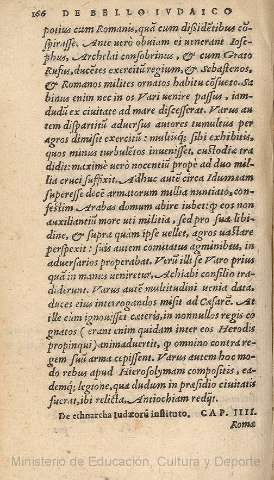 166 DE BELLO IVDAICO
potius cum Romanis, quā cum dissidētibus cō
spirasse. Ante uero obuiam ei uenerant Iose-
phus, Archelai consobrinus, & cum Grato
Rufus, ducētes exercitū regium, & Sebastenos,
& Romanos milites ornatos habitu cōsueto. Sa
binus enim nec in os Vari uenire passus, iam-
dudū ex ciuitate ad mare discesserat. Varus au
tem dispartitū aduersus autores tumultus per
agros dimisit exercitū: multisq́; sibi exhibitis,
quos minus turbulētos inuenisset, custodiæ tra
didit: maximè uerò nocentiū prope ad duo mil-
lia cruci suffixit. Adhuc autē circa Idumæam
superesse decē armatorum millia nuntiato, con-
festim Arabas domum abire iubet: q eos non
auxiliantiū more uti militia, sed pro sua libi-
dine, & supra quàm ipse uellet, agros uastare
perspexit: suis autem comitatus agminibus, in
aduersarios properabat. Verū illi se Varo prius
quā in manus ueniretur, Achiabi consilio tra-
diderunt. Varus autē multitudini uenia data
duces eius interrogandos misit ad Cæsarē. At
ille cùm ignouisset cæteris, in nonnullos regis co
gnatos (erant enim quidam inter eos Herodis
propinqui) animaduertit, q omnino contra re-
gem suū arma cepissent. Varus autem hoc mo-
do rebus apud Hierosolymam compositis, ea-
demq́; legione, qua dudum in præsidio ciuitatis
fuerat, ibi relicta, Antiochiam redijt.
De ethnarcha Iudæorū instituto. CAP. IIII.
Romæ
Ministerio de Educación, Cultura y Deporte